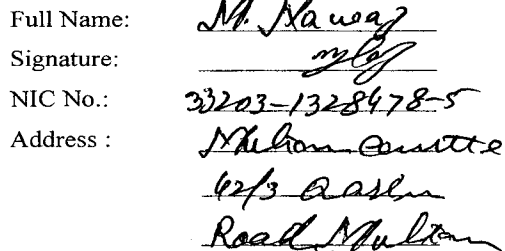 Full Name: M. Nawaz
Signature:
NIC No.: 33203-1328478-5
Address :
62/3 Qasim
Road Multan